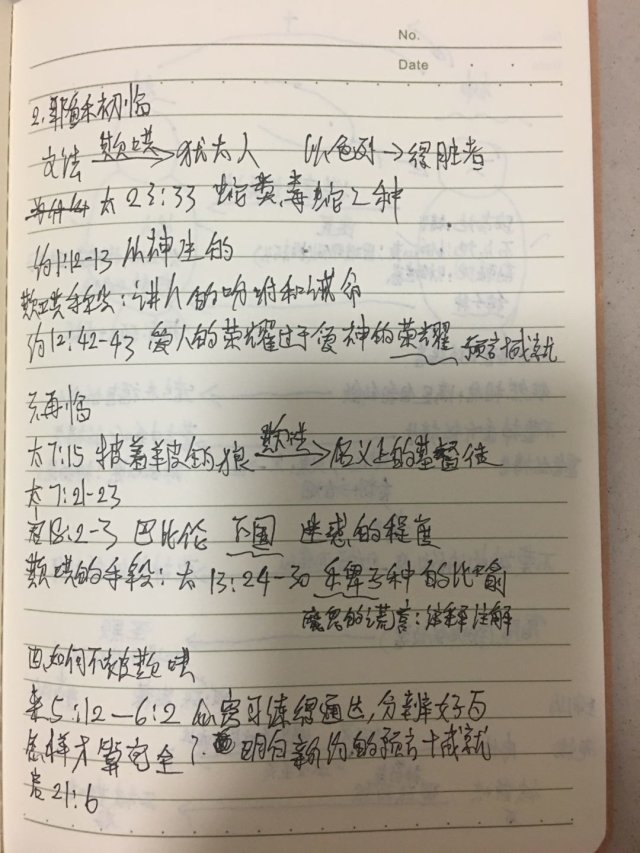 No.
Date
2.耶稣初临
文法 欺哄→ 犹太人 以色列→得胜者
太23:33 蛇类、毒蛇之种
约1:12-13 从神生的
欺哄手段:讲人的吩咐和诫命
约12:42-43 爱人的荣耀过于爱神的荣耀 预言成就
3.再临
太7:15 披着羊皮的狼 欺哄→ 名义上的基督徒
太7:21-23
启18:2-3 巴比伦 万国 迷惑的程度
欺哄的手段:太13:24-30 天界 种的比喻
魔鬼的谎言:注解
四、如何不被欺哄
来5:12—6:2 心窍习练得通达,分辨好歹
怎样才算完全?明白新约的预言+成就
启21:6